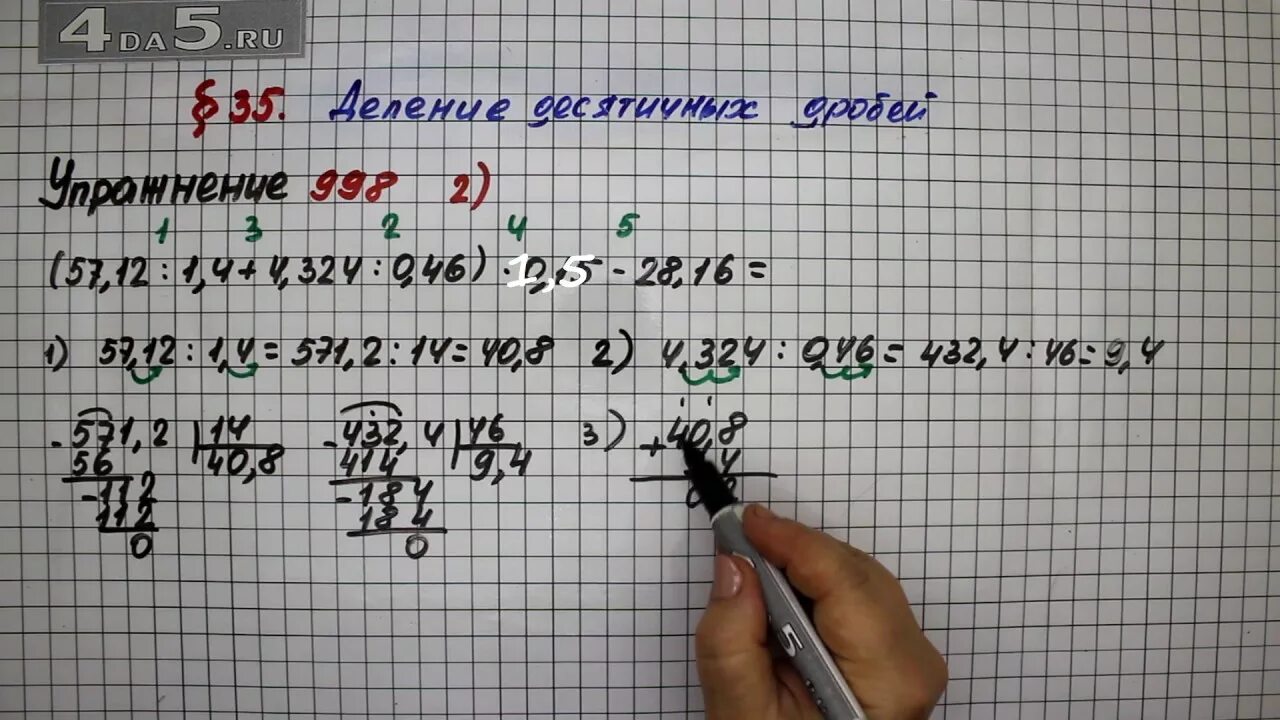 4DA5.RU
§ 35. Деление десятичных дробей
Упражнение 998 2)
1 3 2 4 5
(57,12 : 1,4 + 4,324 : 0,46) · 1,5 - 28,16 =
1) 57,12 : 1,4 = 571,2 : 14 = 40,8 2) 4,324 : 0,46 = 432,4 : 46 = 9,4
- 571,2 14 - 432,4 46 3) + 40,8
56 40,8 414 9,4 4
- 112 - 184
112 184
0 0
5